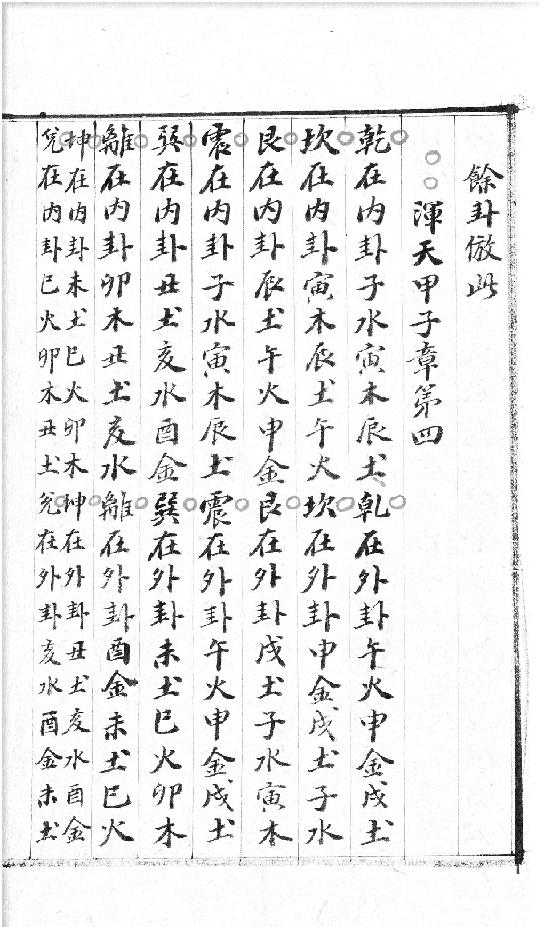 餘卦倣此
渾天甲子章第四
乾在内卦子水寅木辰土乾在外卦午火申金戌土
坎在内卦寅木辰土午火坎在外卦申金戌土子水
艮在内卦辰土午火申金艮在外卦戌土子水寅木
震在内卦子水寅木辰土震在外卦午火申金戌土
巽在内卦丑土亥水酉金巽在外卦未土巳火卯木
離在内卦卯木丑土亥水離在外卦酉金未土巳火
坤在内卦未土巳火卯木坤在外卦丑土亥水酉金
兌在内卦巳火卯木丑土兌在外卦亥水酉金未土